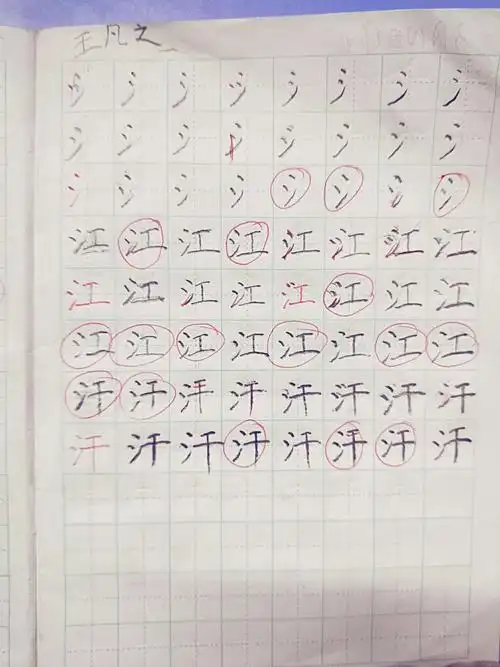 王凡之
氵氵氵氵氵氵氵氵
氵氵氵氵氵氵氵氵
氵氵氵氵氵氵氵氵
江江江江江江江江
江江江江江江江江
江江江江江江江江
汗汗汗汗汗汗汗汗
汗汗汗汗汗汗汗汗